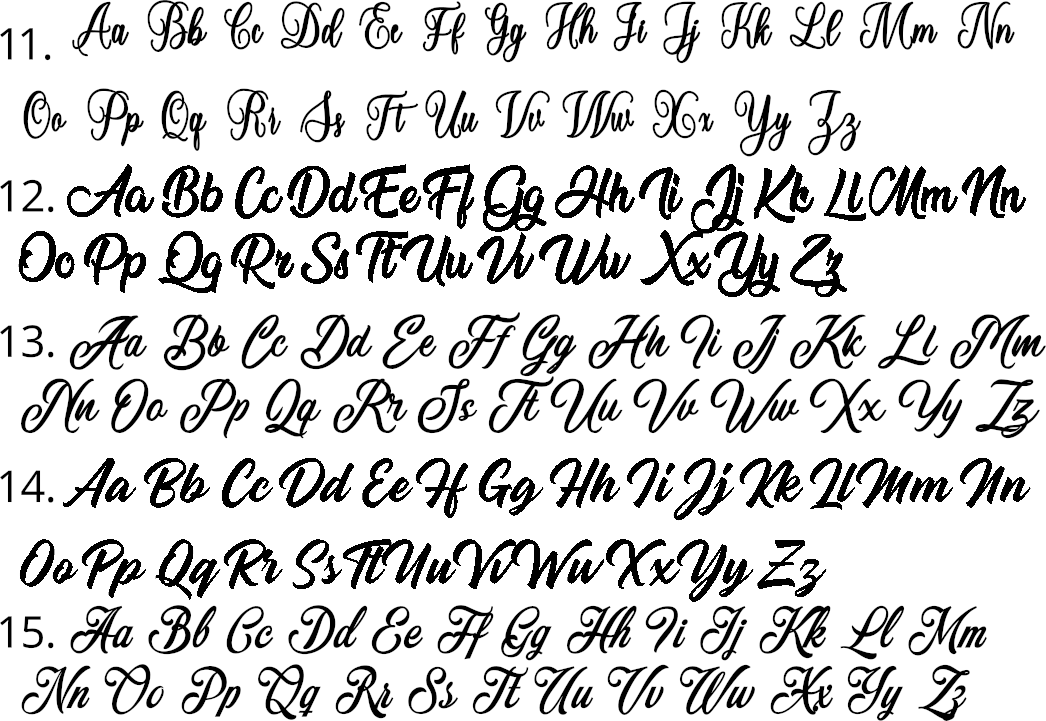 11. Aa Bb Cc Dd Ee Ff Gg Hh Ii Jj Kk Ll Mm Nn
Oo Pp Qq Rr Ss Tt Uu Vv Ww Xx Yy Zz
12. Aa Bb Cc Dd Ee Ff Gg Hh Ii Jj Kk Ll Mm Nn
Oo Pp Qq Rr Ss Tt Uu Vv Ww Xx Yy Zz
13. Aa Bb Cc Dd Ee Ff Gg Hh Ii Jj Kk Ll Mm
Nn Oo Pp Qq Rr Ss Tt Uu Vv Ww Xx Yy Zz
14. Aa Bb Cc Dd Ee Ff Gg Hh Ii Jj Kk Ll Mm Nn
Oo Pp Qq Rr Ss Tt Uu Vv Ww Xx Yy Zz
15. Aa Bb Cc Dd Ee Ff Gg Hh Ii Jj Kk Ll Mm
Nn Oo Pp Qq Rr Ss Tt Uu Vv Ww Xx Yy Zz